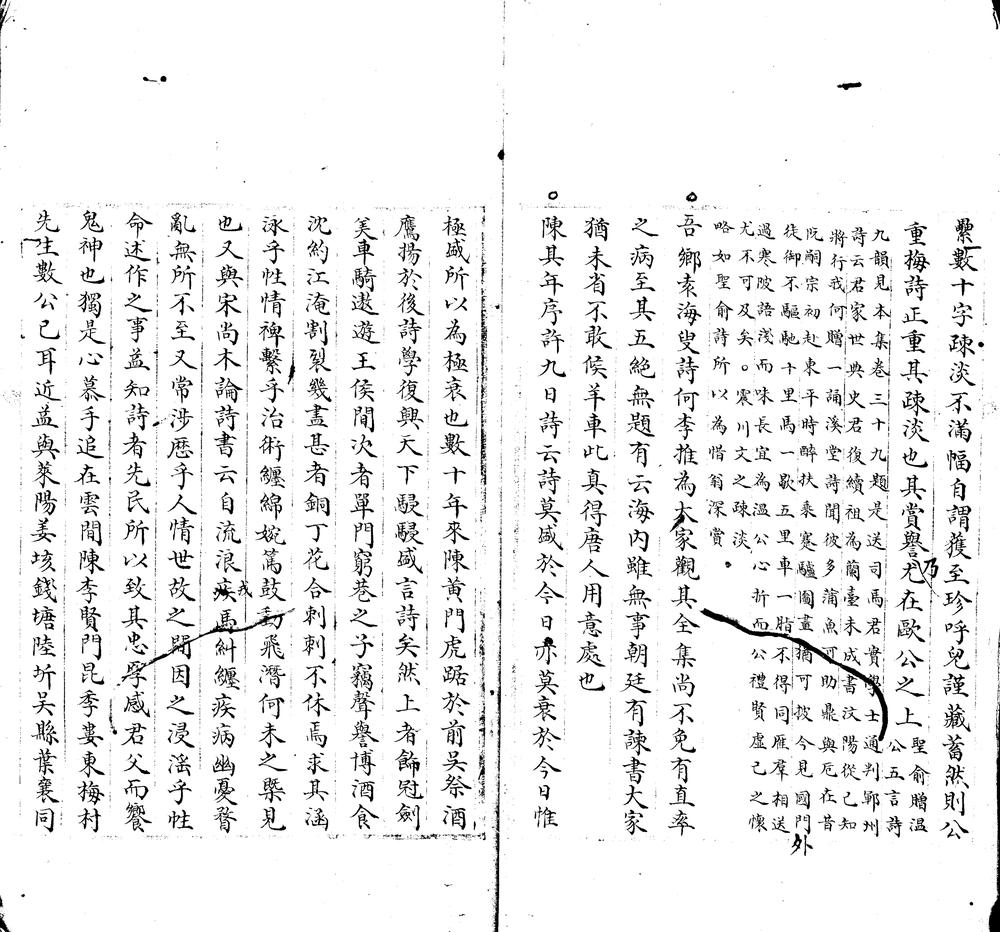 纍數十字疎淡不滿幅自謂獲至珍呼兒謹藏蓄然則公
重梅詩正重其疎淡也其賞譽尤在歐公之上
乃
聖俞贈溫
公五言詩
九韻見本集卷三十九題是送司馬君實學士通判鄆州
詩云君家世典史君復續祖為蘭臺未成書汶陽從已知
將行我何贈一誦溪堂詩聞彼多蒲魚可助鼎與卮在昔
阮嗣宗初赴東平時醉扶乘蹇驢圖畫猶可披今見國門
外
徒御不驅馳十里馬一歇五里車一脂不得同雁羣相送
過寒陂語淺而味長宜為溫公心折而公禮賢虛己之懷
尤不可及矣。震川文之疎淡
略如聖俞詩所以為惜翁深賞
吾鄉袁海叟詩何李推為大家觀其全集尚不免有直率
之病至其五絕無題有云海內雖無事朝廷有諫書大家
猶未省不敢候羊車此真得唐人用意處也
陳其年序許九日詩云詩莫盛於今日亦莫衰於今日惟
極盛所以為極衰也數十年來陳黃門虎踞於前吳祭酒
鷹揚於後詩學復興天下駸駸盛言詩矣然上者飾冠劍
美車騎遨遊王侯間次者單門窮巷之子竊聲譽博酒食
沈約江淹割裂幾盡甚者銅丁花合刺刺不休焉求其涵
泳乎性情裨繫乎治術纏綿婉篤鼓動飛潛何未之槩見
也又與宋尚木論詩書云自流浪疾馬糾纏疾病幽憂瞀
戎
亂無所不至又常涉歷乎人情世故之間因之浸淫乎性
命述作之事益知詩者先民所以致其忠孝感君父而饗
鬼神也獨是心慕手追在雲間陳李賢門昆季婁東梅村
先生數公已耳近益與萊陽姜垓錢塘陸圻吳縣葉襄同